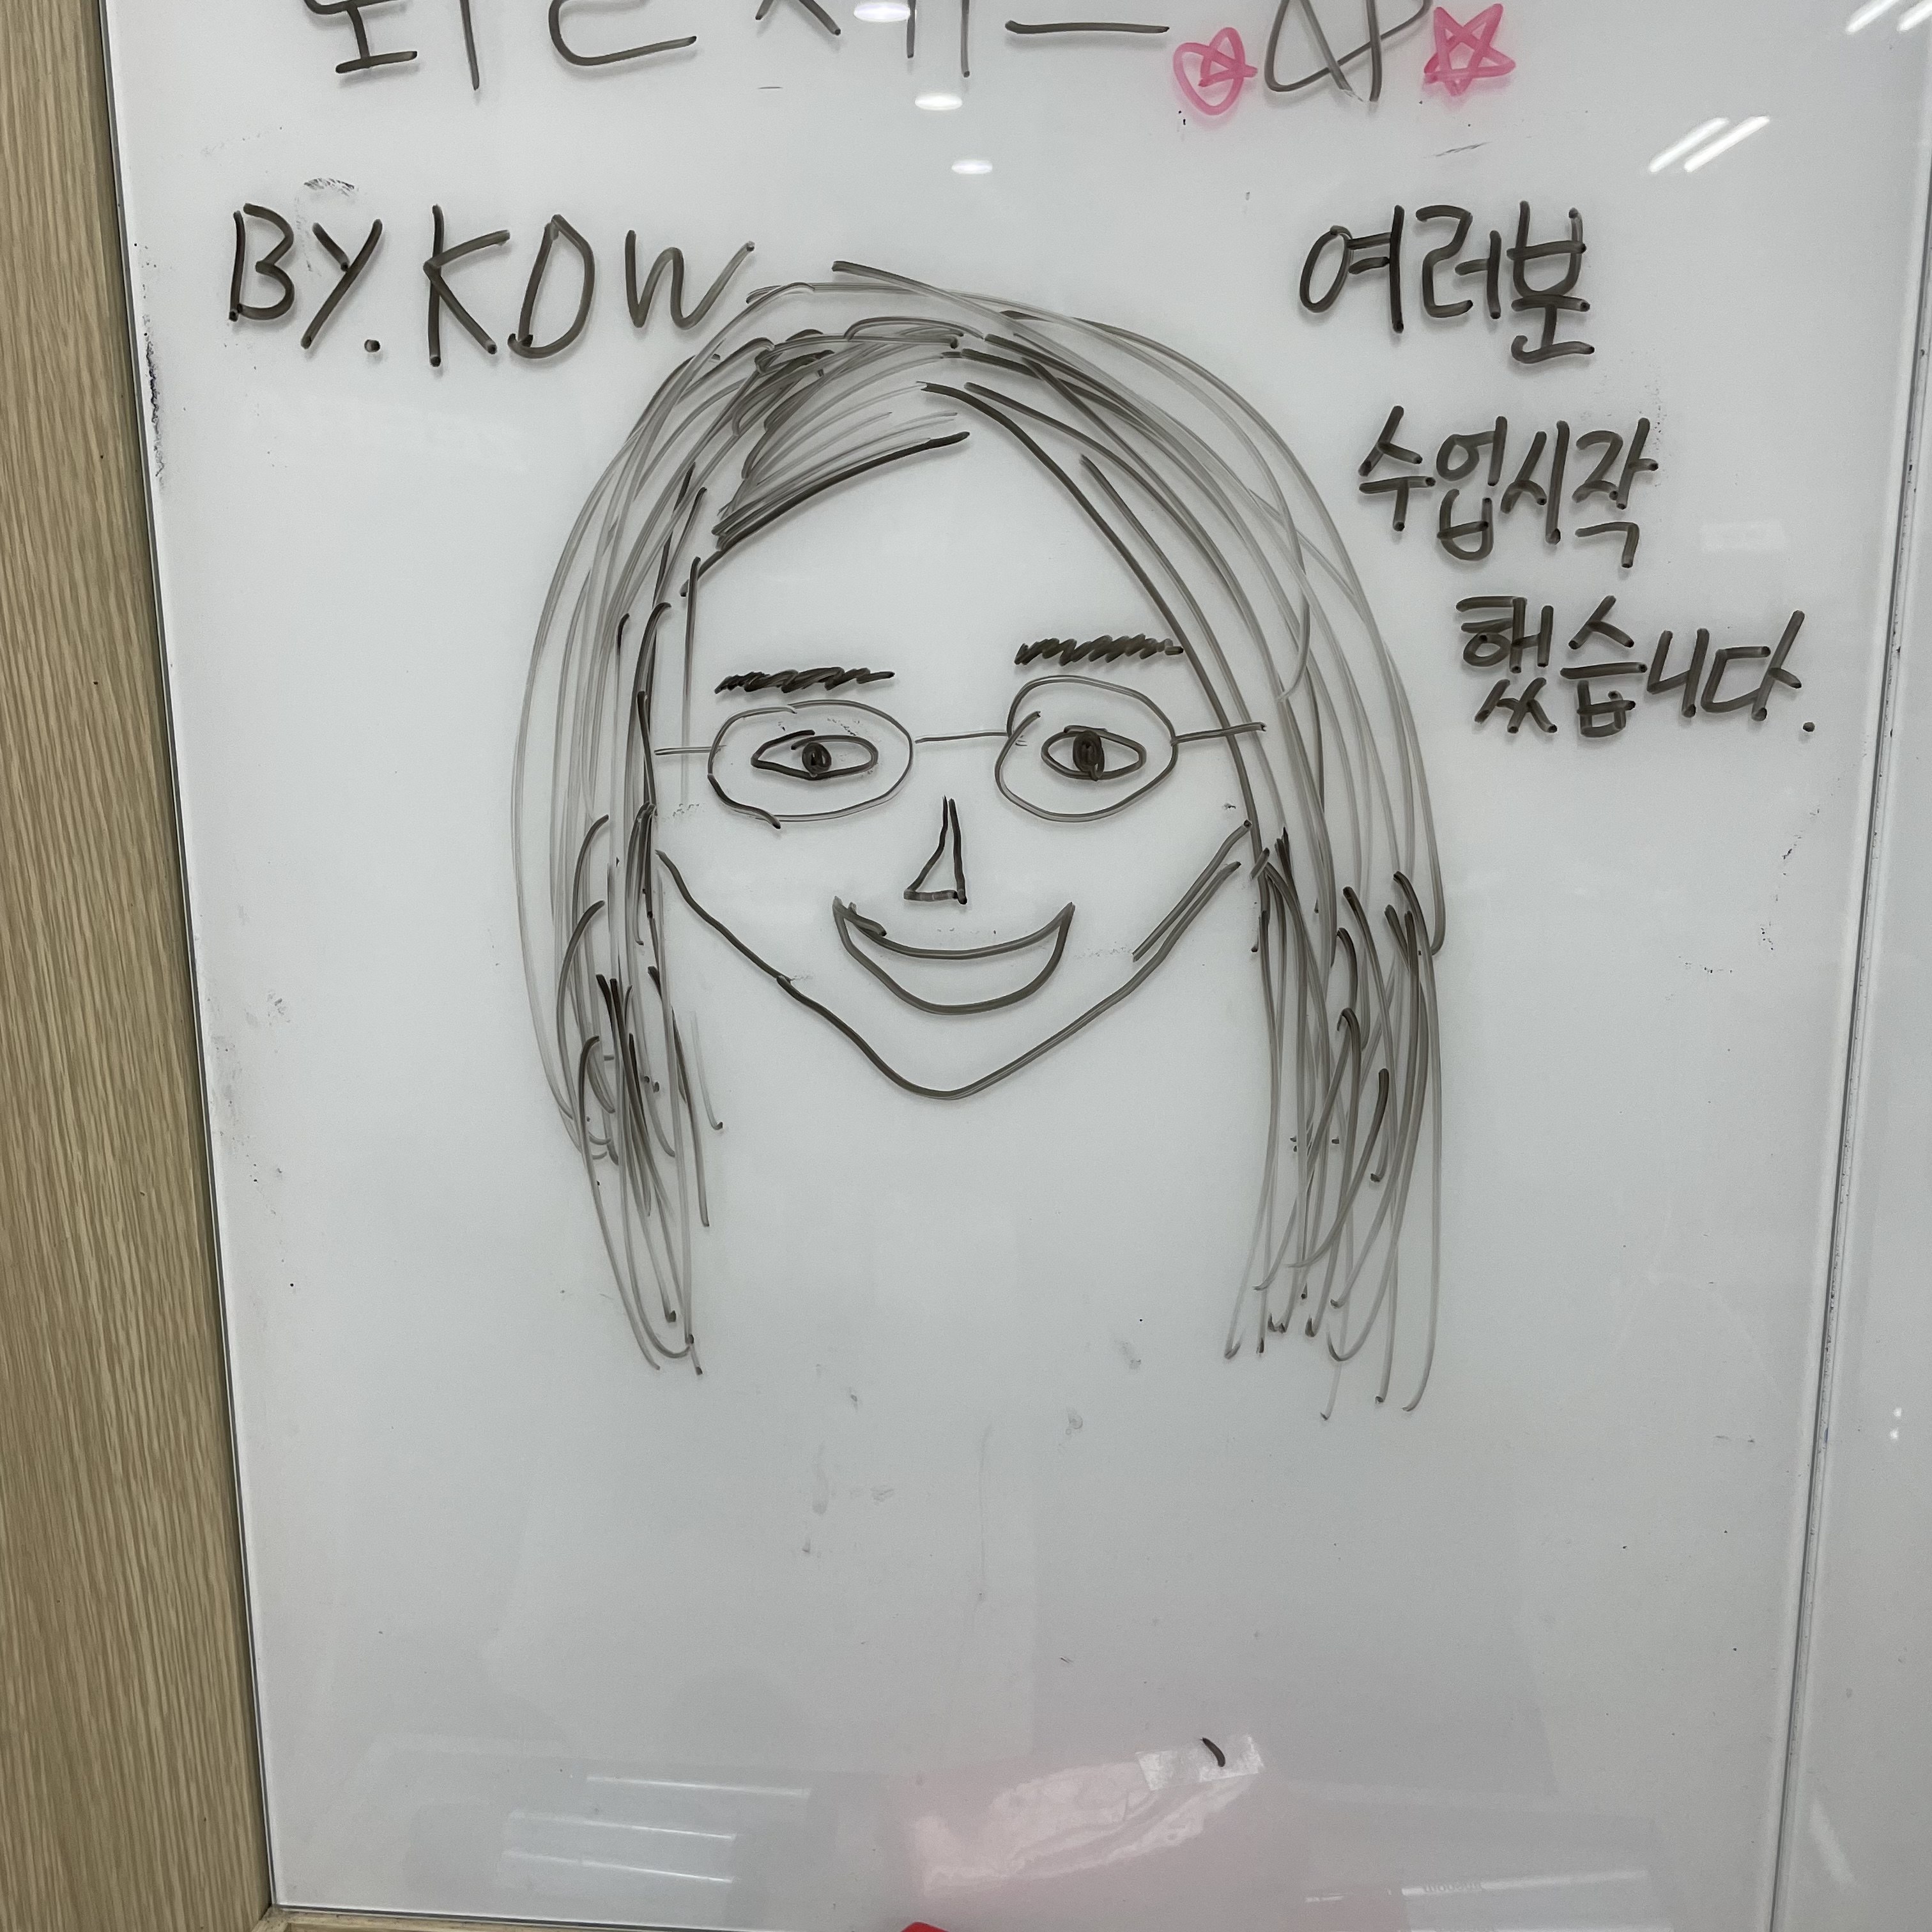 BY. KDW
여러분
수업시작
했습니다.